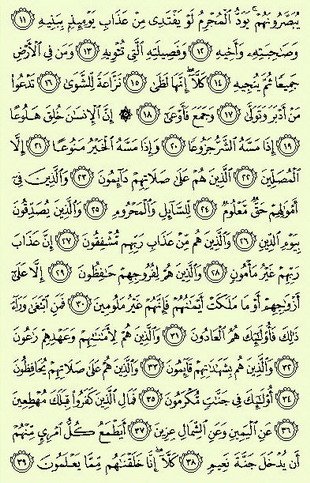 يُبَصَّرُونَهُمْ ۚ يَوَدُّ الْمُجْرِمُ لَوْ يَفْتَدِي مِنْ عَذَابِ يَوْمِئِذٍ بِبَنِيهِ ١١
وَصَاحِبَتِهِ وَأَخِيهِ ١٢ وَفَصِيلَتِهِ الَّتِي تُؤْوِيهِ ١٣ وَمَن فِي الْأَرْضِ
جَمِيعًا ثُمَّ يُنجِيهِ ١٤ كَلَّا ۖ إِنَّهَا لَظَىٰ ١٥ نَزَّاعَةً لِّلشَّوَىٰ ١٦ تَدْعُوا
مَنْ أَدْبَرَ وَتَوَلَّىٰ ١٧ وَجَمَعَ فَأَوْعَىٰ ١٨ ۞ إِنَّ الْإِنسَانَ خُلِقَ هَلُوعًا
١٩ إِذَا مَسَّهُ الشَّرُّ جَزُوعًا ٢٠ وَإِذَا مَسَّهُ الْخَيْرُ مَنُوعًا ٢١ إِلَّا
الْمُصَلِّينَ ٢٢ الَّذِينَ هُمْ عَلَىٰ صَلَاتِهِمْ دَائِمُونَ ٢٣ وَالَّذِينَ فِي
أَمْوَالِهِمْ حَقٌّ مَّعْلُومٌ ٢٤ لِّلسَّائِلِ وَالْمَحْرُومِ ٢٥ وَالَّذِينَ يُصَدِّقُونَ
بِيَوْمِ الدِّينِ ٢٦ وَالَّذِينَ هُم مِّنْ عَذَابِ رَبِّهِم مُّشْفِقُونَ ٢٧ إِنَّ عَذَابَ
رَبِّهِمْ غَيْرُ مَأْمُونٍ ٢٨ وَالَّذِينَ هُمْ لِفُرُوجِهِمْ حَافِظُونَ ٢٩ إِلَّا عَلَىٰ
أَزْوَاجِهِمْ أَوْ مَا مَلَكَتْ أَيْمَانُهُمْ فَإِنَّهُمْ غَيْرُ مَلُومِينَ ٣٠ فَمَنِ ابْتَغَىٰ وَرَاءَ
ذَٰلِكَ فَأُولَٰئِكَ هُمُ الْعَادُونَ ٣١ وَالَّذِينَ هُمْ لِأَمَانَاتِهِمْ وَعَهْدِهِمْ رَاعُونَ
٣٢ وَالَّذِينَ هُم بِشَهَادَاتِهِمْ قَائِمُونَ ٣٣ وَالَّذِينَ هُمْ عَلَىٰ صَلَاتِهِمْ يُحَافِظُونَ
٣٤ أُولَٰئِكَ فِي جَنَّاتٍ مُّكْرَمُونَ ٣٥ فَمَالِ الَّذِينَ كَفَرُوا قِبَلَكَ مُهْطِعِينَ
٣٦ عَنِ الْيَمِينِ وَعَنِ الشِّمَالِ عِزِينَ ٣٧ أَيَطْمَعُ كُلُّ امْرِئٍ مِّنْهُمْ
أَن يُدْخَلَ جَنَّةَ نَعِيمٍ ٣٨ كَلَّا ۖ إِنَّا خَلَقْنَاهُم مِّمَّا يَعْلَمُونَ ٣٩